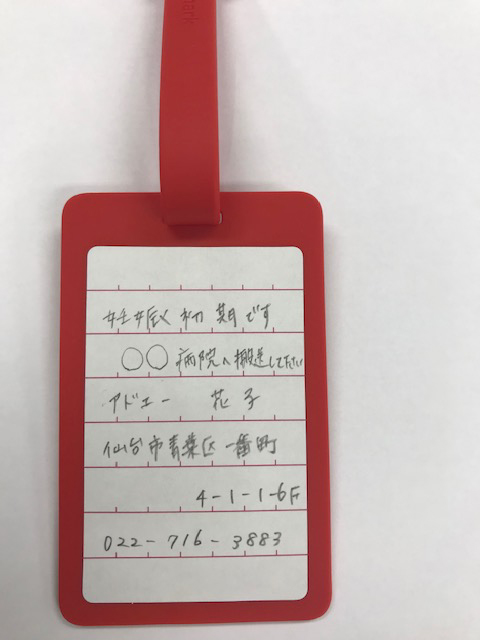 mark
妊娠初期です
○○病院へ搬送してください
アドエー 花子
仙台市青葉区一番町
4-1-1-6F
022-716-3883